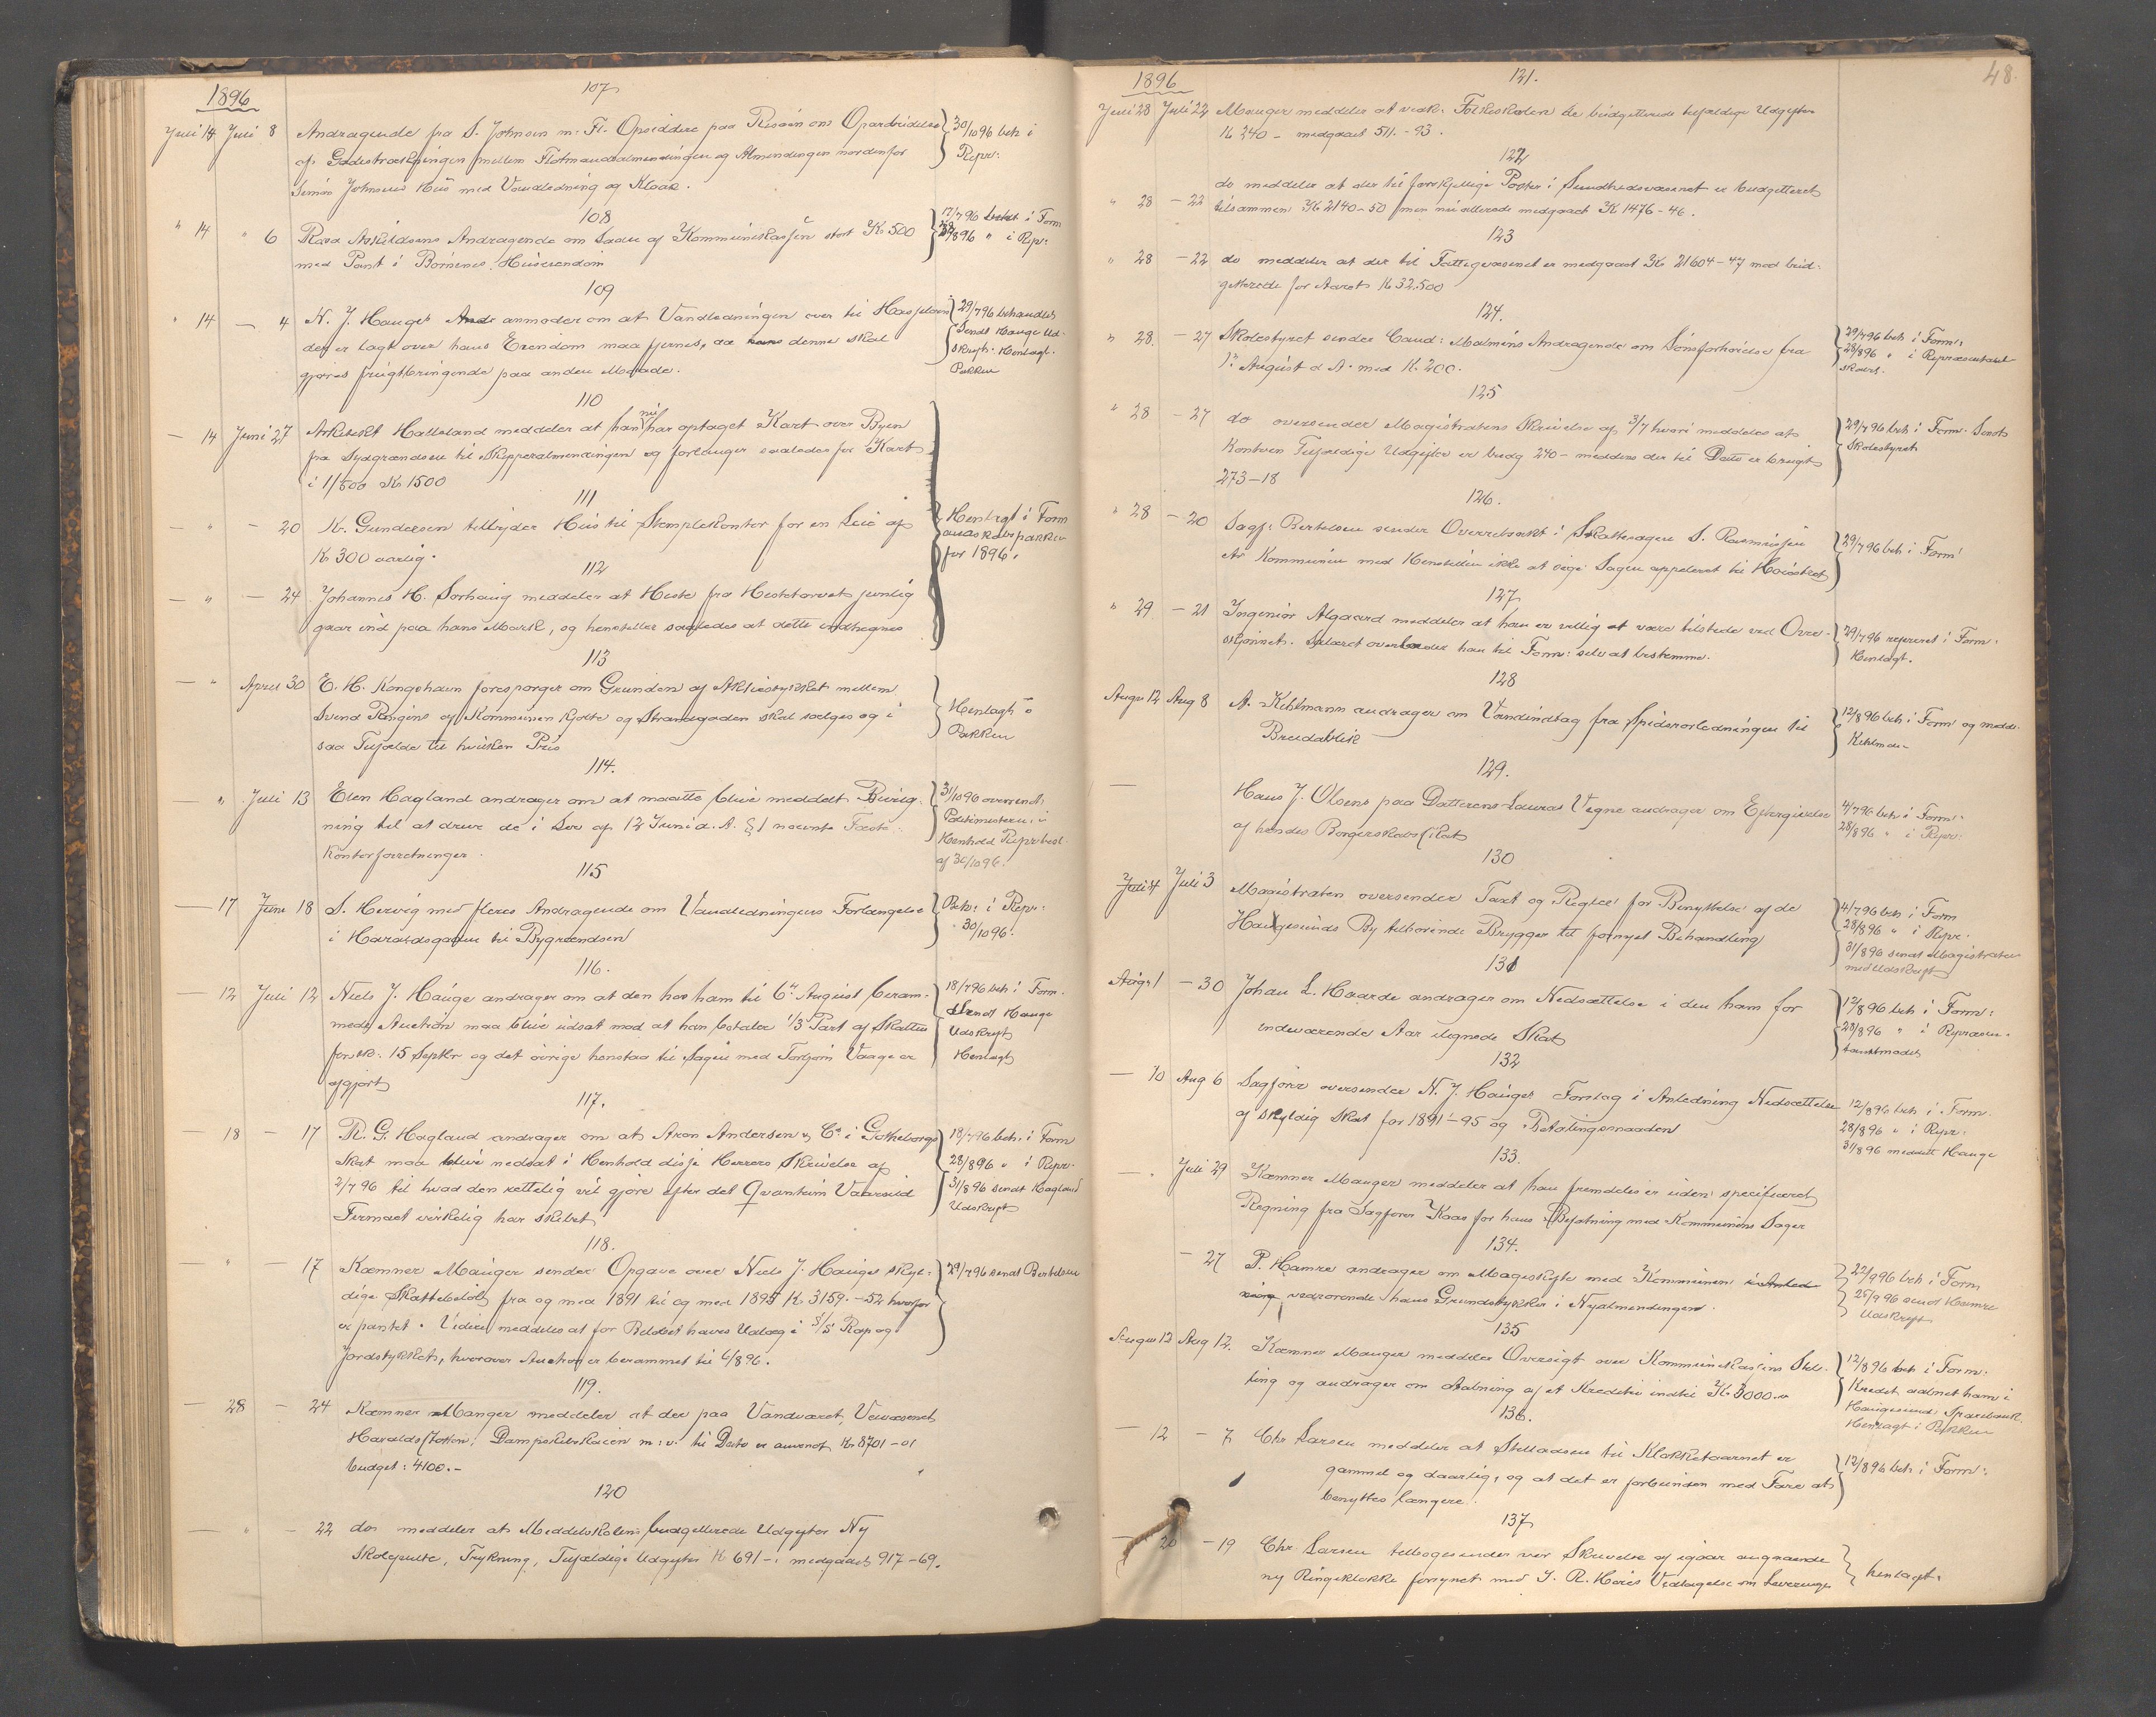 1896
107
Juli 14 Juli 8 Andragende fra S. Johnsen m. Fl. Opsiddere paa Risøen om Oparbeidelse } 30/10 96 beh i
af Gadestrækningen mellem Flotmandsalmendingen og Almendingen nordenfor Repr:
Simon Johnsens Hus med Vandledning og Kloak.
108
" 14 " 6 Rasa Askildsens Andragende om Laan af Kommunekassen stort Kr 500 } 17/7 96 behdt i Form
med Pant i Børnenes Huseiendom 28/8 96 " i Repr:
109
" 14 — 4 N. J. Hauges anmoder om at Vandledningen over til Hasseløen } 29/7 96 behandlet
der er lagt over hans Eiendom maa fjernes, da denne skal Sendt Hauge Ud-
gjøres frugtbringende paa anden Maade. skrift. Henlagt.
Pakken
110
— 14 Juni 27 Arkitekt Halleland meddeler at han nu har optaget Kart over Byen
fra Sydgrændsen til Skipperalmendingen og forlanger saaledes for Kart
i 1/500 Kr 1500
111
— " — 20 K. Gundersen tilbyder Hus til Stemplekontor for en Leie af Henlagt i Form
Kr 300 aarlig. andskabspakken
for 1896.
112
— " — 24 Johannes H. Sørhaug meddeler at Heste fra Hestetorvet jevnlig
gaar ind paa hans Mark, og henstiller saaledes at dette indhegnes
113
— " April 30 E. H. Kongshavn foresporger om Grunden af Aktiestykket mellem
Svend Risøens og Kommunen Kjøbte og Strandgaden skal sælges og i } Henlagt i
saa Tilfælde til hvilken Pris Pakken
114.
— " Juli 13 Elen Hagland andrager om at maatte blive meddelt Bevilg- } 31/10 96 oversendt
ning til at drive de i Lov af 12 Juni d. A. § 1 nævnte Fæste- Politimesteren i
Kontorforretninger. Henhold Repr.besl.
af 30/10 96.
115
— 17 Juni 18 S. Hervig med fleres Andragende om Vandledningens Forlængelse } Beh: i Repr:
i Haraldsgaden til Bygrændsen 30/10 96.
116.
— 12 Juli 12 Niels J. Hauge andrager om at den hos ham til 6te August beram- 18/7 96 beh: i Form.
mede Auction maa blive udsat mod at han betaler 1/3 Part af Skatten Sendt Hauge
før ek: 15 Septbr og det øvrige henstaa til Sagen med Torgjen Vaage er Udskrift
afgjort Henlagt
117.
— 18 — 17 R. G. Hagland andrager om at Aron Andersen & Co i Gøtheborgs } 18/7 96 beh: i Form
Skat maa blive nedsat i Henhold disse Herrers Skrivelse af 28/8 96 " i Repr.
2/7 96 til hvad den rettelig vil gjøre efter det Qvantum Vaarsild 31/8 96 sendt Hagland
Firmaet virkelig har skibet Udskrift
118.
— " — 17 Kæmner Mauger sender Opgave over Niels J. Hauges skyl- } 29/7 96 sendt Bertelsen
dige Skattebeløb fra og med 1891 til og med 1895 Kr 3159.-52 hvorfor
er pantet. Videre meddeles at for Beløbet haves Udlæg i S/S Rap og
Jordstykket, hvorover Auction er berammet til 6/8 96.
119.
— 28 — 24 Kæmner Mauger meddeler at der paa Vandværet, Veivæsenet
Haraldsstøtten, Dampskibskaien m: v: til Dato er anvendt Kr 8701-01
budget: 4100.-
120
— " — 22 do meddeler at Middelskolens budgetterede Udgifter Ny
Skolepulte, Trykning, Tilfældige Udgifter Kr 691-: medgaaet 917-69.
48.
1896
121.
Juli 28 Juli 22 Mauger meddeler at vedk: Folkeskolen de budgetterede tilfældige Udgifter
Kr 240 - medgaaet 511.-93.
122
" 28 — 22 do meddeler at der til forskjellige Poster i Sundhedsvæsenet er budgetteret
tilsammen Kr 2140-50 men nu allerede medgaaet Kr 1476-46.
123
" 28 — 22 do meddeler at der til Fattigvæsenet er medgaaet Kr 21604-47 mod bud-
getterede for Aaret Kr 32.500
124.
" 28. — 27 Skolestyret sender Cand: Malmins Andragende om Lønsforhøielse fra } 29/7 96 beh i Form:
1ste August d A. med K. 200. 28/8 96 " i Repræsentant
skabet.
125
" 28 — 27 do oversender Magistratens Skrivelse af 3/7 hvori meddeles at } 29/7 96 beh i Form. Sendt
Kontoen Tilfældige Udgifter er budg 240- meddens der til Dato er brugt Skolestyret
273-18
126.
" 28 — 20 Sagf: Bertelsen sender Overretsakt i Skattesagen S. Rasmussen } 29/7 96 beh i Form
ctr Kommunen med Henstillen ikke at søge Sagen appeleret til Høiesteret
127
" 29 — 21 Ingeniør Algaard meddeler at han er villig at være tilstede ved Over- } 29/7 96 refereret i Form.
skjønnet. Salæret overlader han til Form: selv at bestemme. Henlagt.
128
August 12 Aug 8 A. Kihlmann andrager om Vandindtag fra Spidsrorledningen til } 12/8 96 beh i Form og medd.
Breidablik Kihlman
129.
— Hans J. Olsens paa Datterens Lauras Vegne andrager om Eftergivelse 4/7 96 beh i Form:
af hendes Borgerskabsskat 28/8 96 " i Repr:
130
Juli 4 Juli 3 Magistraten oversender Taxt og Regler for Benyttelse af de 4/7 96 beh i Form
Haugesunds By tilhørende Brygger til fornyet Behandling 28/8 96 " i Repr.
31/8 96 sendt Magistraten
med Udskrift
131
Aug. 1 — 30 Johan L. Haarde andrager om Nedsættelse i den ham for } 12/8 96 beh i Form:
indeværende Aar ilignede Skat 28/8 96 " i Repræsen-
tantmødet
132
— 10 Aug 6 Sagfører oversender N. J. Hauges Forslag i Anledning Nedsættelse 12/8 96 beh i Form
af skyldig Skat for 1891-95 og Betalingsmaaden 28/8 96 " i Repr:
31/8 96 meddelt Hauge
133.
— . Juli 29 Kæmner Mauger meddeler at han fremdeles er uden specificeret
Regning fra Sagfører Kaas for hans Befatning med Kommunens Sager
134.
— 27 P. Hamre andrager om Mageskifte med Kommunen i Anled- } 22/9 96 beh i Form
ning vedrørende hans Grundstykker i Nyalmendingen. 25/9 96 sendt Hamre
Udskrift
135
August 12 Aug 12. Kæmner Mauger meddeler Oversigt over Kommunekassens Stil- } 12/8 96 beh i Form:
ling og andrager om Aabning af et Kreditiv indtil Kr 3000.- Kredit aabnet ham i
Haugesunds Sparebank.
Henlagt i Pakken
136.
— 12 — 7 Chr Larsen meddeler at Stilladsen til Klokketaarnet er } 12/8 96 beh i Form:
gammel og daarlig, og at det er forbunden med Fare at
benyttes længere.
137
— 20 — 19 Chr. Larsen tilbagesender vor Skrivelse af igaar angaaende } henlagt.
ny Ringeklokke forsynet med J. R. Høies Vedtagelse om Leverings